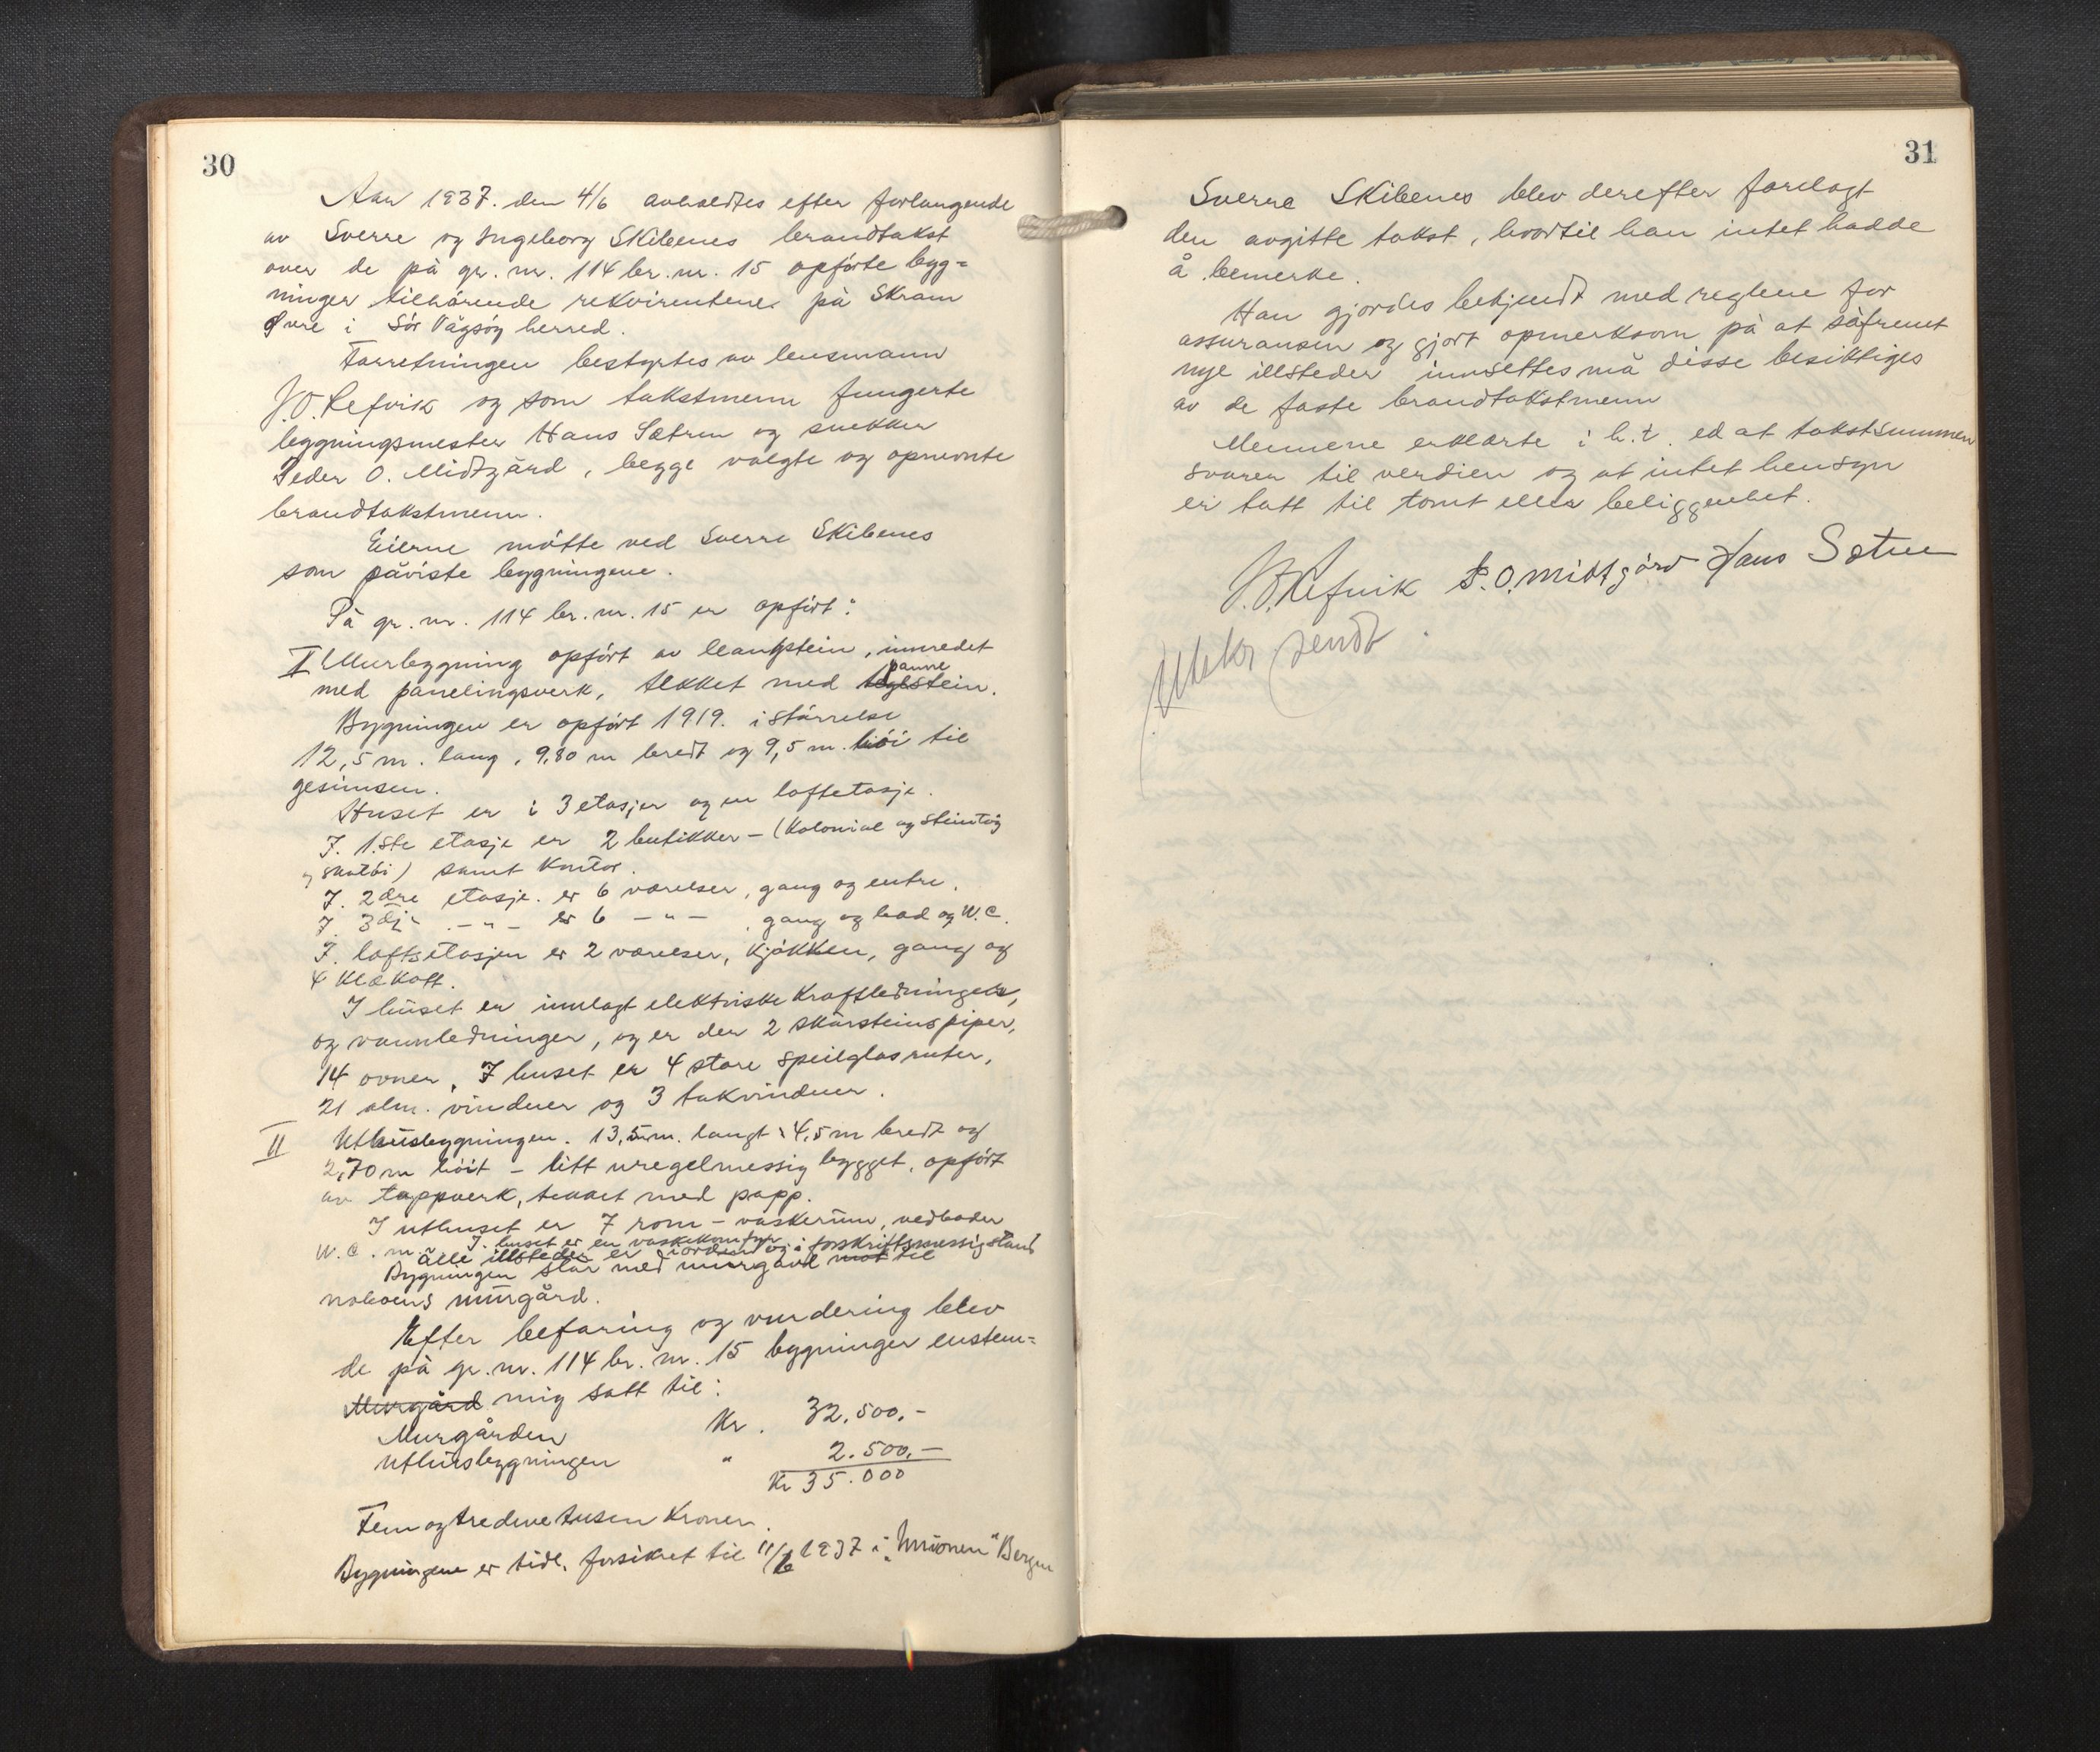 30
Aar 1937. den 4/6 avholdtes efter forlangende
av Sverre og Ingeborg Skibenes brandtakst
over de på gr. nr. 114 br. nr. 15 opførte byg=
ninger tilhørende rekvirentene på Skram
Øvre i Sør Vågsøy herred.
Forretningen bestyrtes av lensmann
J.O. Refvik og som takstmenn fungerte
byggningsmester Hans Sætren og snekker
Peder O. Midtgård, begge valgte og opnevnte
brandtakstmenn.
Eierne møtte ved Sverre Skibenes
som påviste bygningene.
På gr. nr. 114 br. nr. 15 er opført:
I Murbygning opført av , innredet
med panelingsverk, tekket med panne
stein.
Bygningen er opført 1919. i størrelse
12,5 m. lang, 9,80 m bredt og 9,5 m. høi til
gesimsen.
Huset er i 3 etasjer og en loftetasje.
I. 1.ste etasje er 2 butikker – (Kolonial og Steintøi
og skotøi) samt Kontor.
I. 2dre etasje. er 6 værelser, gang og entre.
I. 3dje – " – er 6 – " – , gang og bad og W.C.
I. loftsetasjen er 2 værelser, kjøkken, gang og
4 klækott.
I huset er innlagt elektriske kraftledninger,
og vannledninger, og er der 2 skorsteinspiper,
14 ovner. I huset er 4 store speilglasruter,
21 alm. vinduer og 3 takvinduer.
II Uthusbygningen. 13,5 m. langt 4,5 m bredt og
2,70 m høit – litt uregelmessig bygget, opført
av tappverk, tekket med papp.
I uthuset er 7 rom – vaskerum, vedboder
W.C. m. I. huset er en vaskekomfyr
Alle illsteder er i orden og i forskriftsmessig stand
Bygningen står med murgavl mot til
naboens murgård.
Efter befaring og vurdering blev
de på gr. nr. 114 br. nr. 15 bygninger enstem=
Murgård mig satt til:
Murgården Kr. 32.500.-
Uthusbygningen " 2.500.-
Kr 35.000
Fem og tredive tusen Kroner.
Bygningene er tidl. forsikret til 11/6 1937 i "Unionen" Bergen
31
Sverre Skibenes blev derefter forelagt
den avgitte takst, hvortil han intet hadde
å bemerke.
Han gjordes bekjendt med reglene for
assuransen og gjort opmerksom på at såfremt
nye illsteder innsettes må disse besiktiges
av de faste brandtakstmenn
Mennene erklærte i h.t. ed at takstsummen
svarer til verdien og at intet hensyn
er tatt til tomt eller beliggenhet.
J.O. Refvik P.O. Midtgård Hans Sætren
Utskr sendt